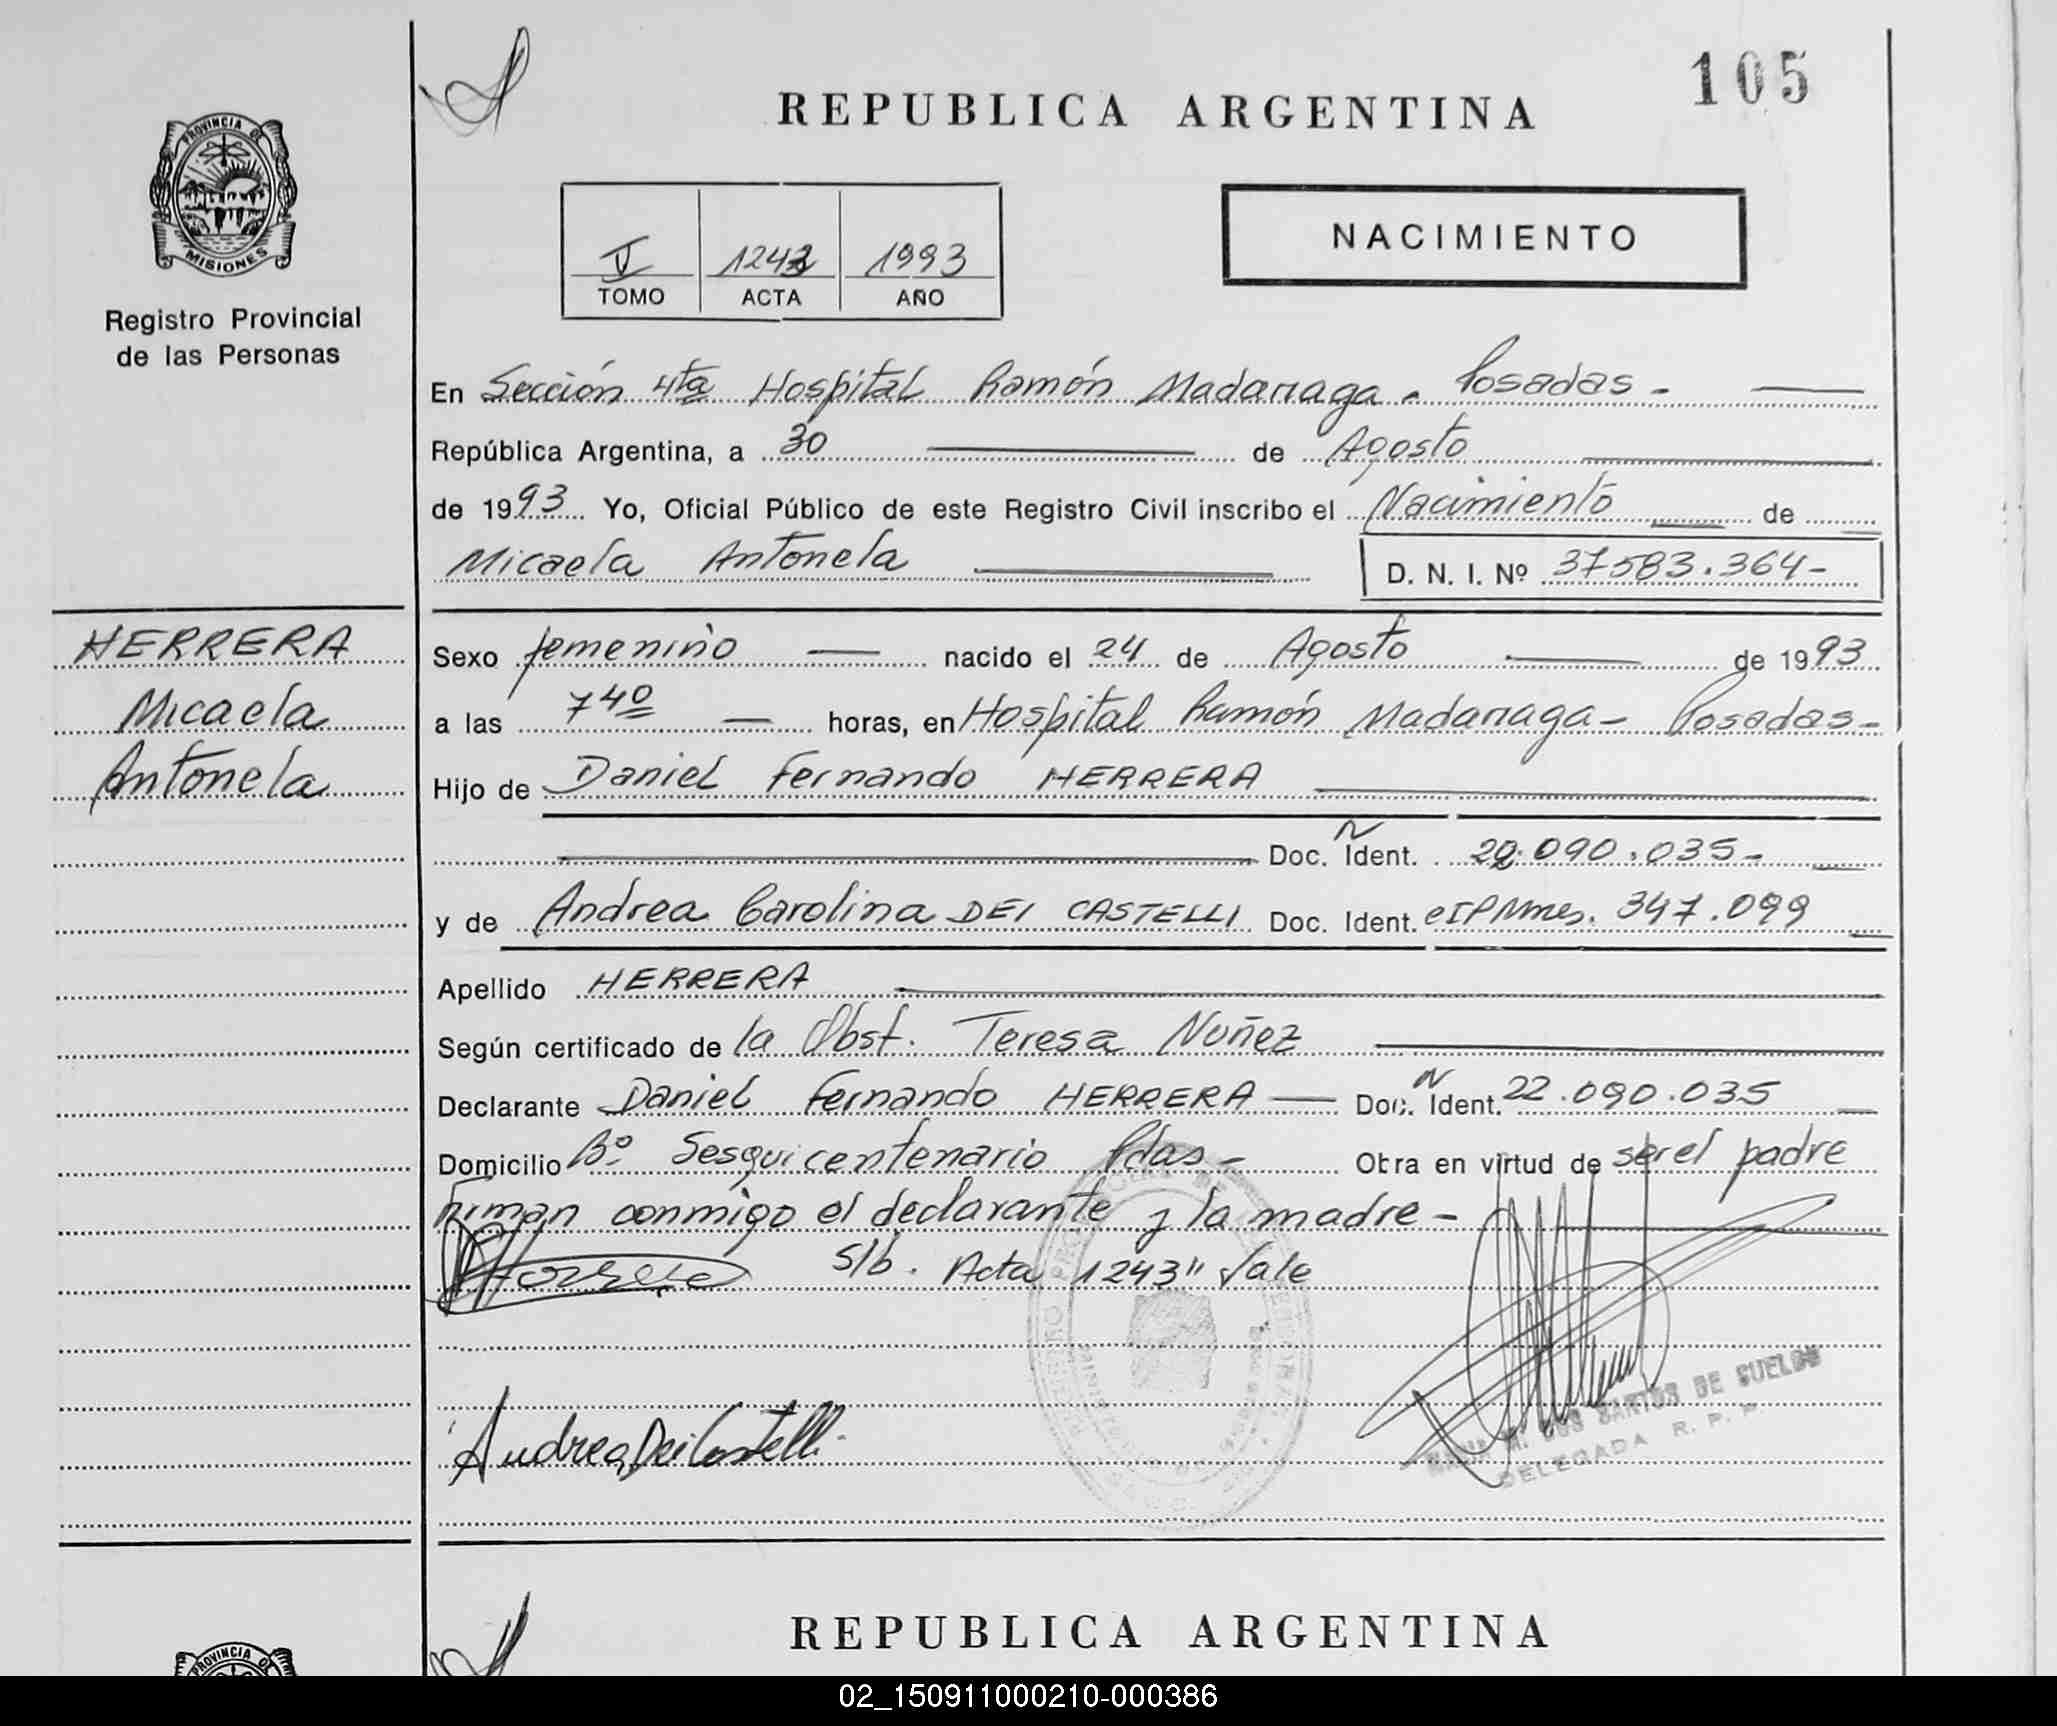 105
REPUBLICA ARGENTINA
PROVINCIA DE
MISIONES
Registro Provincial
de las Personas
V 1243 1993
TOMO ACTA AÑO
NACIMIENTO
En Sección 4ta Hospital Ramón Madariaga - Posadas -
República Argentina, a 30 de Agosto
de 1993 Yo, Oficial Público de este Registro Civil inscribo el Nacimiento de
Micaela Antonela D. N. I. Nº 37583.364-
HERRERA
Micaela
Antonela
Sexo femenino nacido el 24 de Agosto de 1993
a las 7 40 horas, en Hospital Ramón Madariaga - Posadas -
Hijo de Daniel Fernando HERRERA
Doc. N Ident. 22.090.035-
y de Andrea Carolina DEI CASTELLI Doc. Ident. 347.099
Apellido HERRERA
Según certificado de la Obst. Teresa Nuñez
Declarante Daniel Fernando HERRERA Doc. N Ident. 22.090.035
Domicilio Bº Sesquicentenario Pdas - Obra en virtud de ser el padre
Firman conmigo el declarante y la madre -
S/b. Acta 1243" Vale
Andrea Dei Castelli
DOS SANTOS DE SUELDO
DELEGADA R. P. P.
REPUBLICA ARGENTINA
PROVINCIA DE
02_150911000210-000386